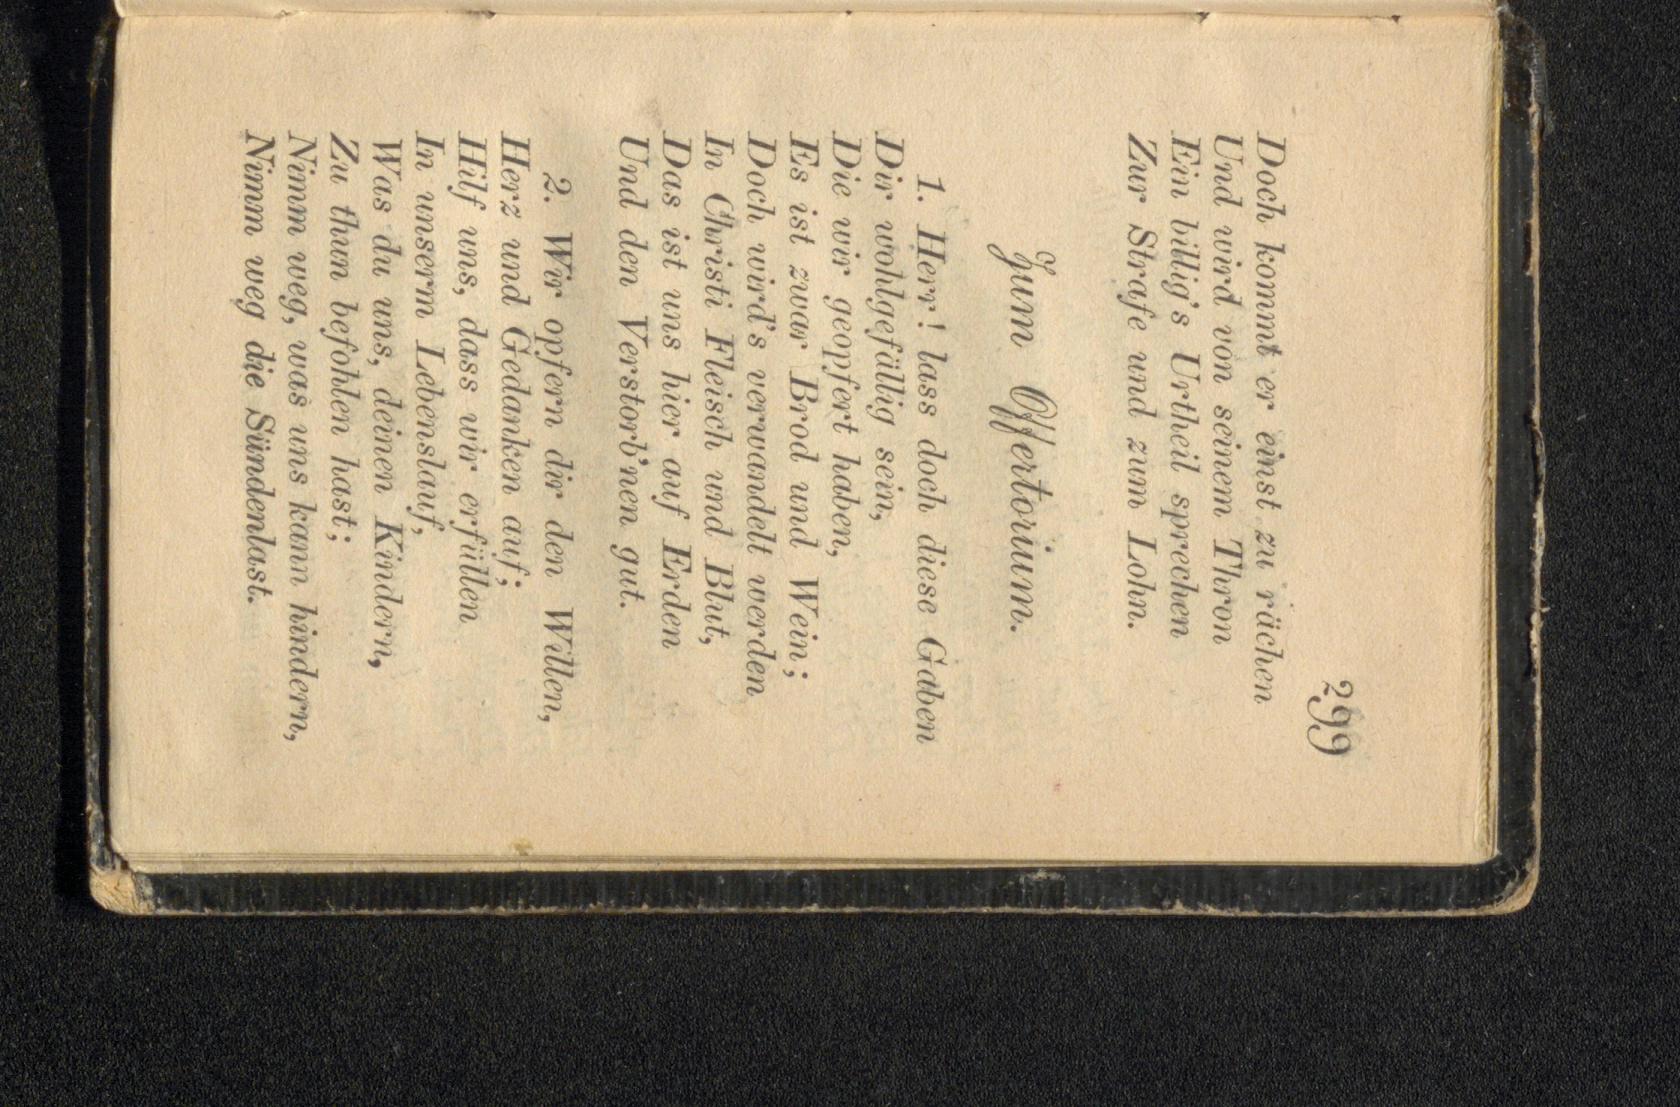 299
Doch kommt er einst zu rächen
Und wird von seinem Thron
Ein billig's Urtheil sprechen
Zur Strafe und zum Lohn.
Zum Offertorium.
1. Herr! lass doch diese Gaben
Dir wohlgefällig sein,
Die wir geopfert haben,
Es ist zwar Brod und Wein;
Doch wird's verwandelt werden
In Christi Fleisch und Blut,
Das ist uns hier auf Erden
Und den Verstorb'nen gut.
2. Wir opfern dir den Willen,
Herz und Gedanken auf;
Hilf uns, dass wir erfüllen
In unserm Lebenslauf,
Was du uns, deinen Kindern,
Zu thun befohlen hast;
Nimm weg, was uns kann hindern,
Nimm weg die Sündenlast.